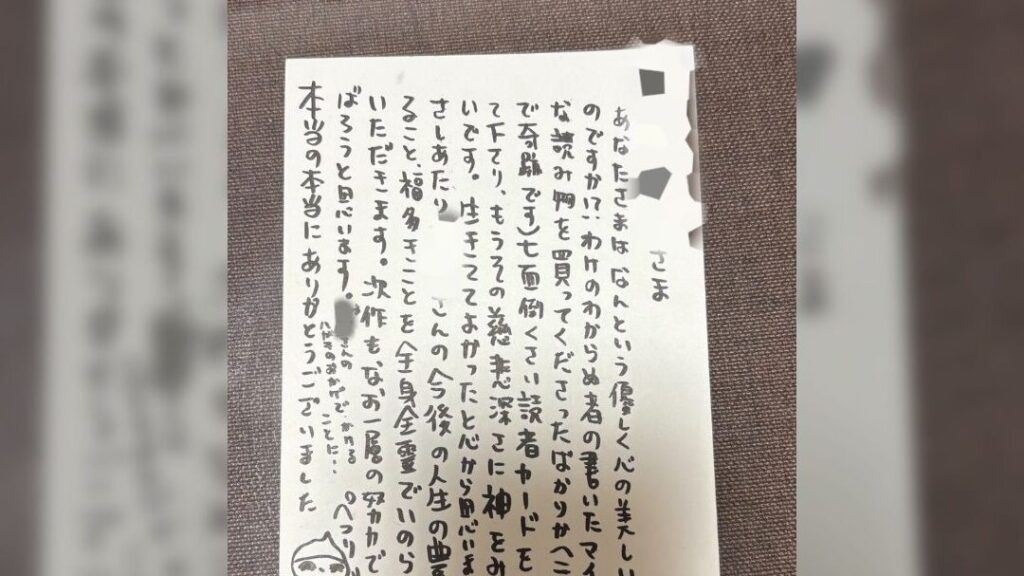 さま
あなたさまはなんという優しく心の美しい
のですか!?わけのわからぬ者の書いたマイ
な読み物を買ってくださったばかりか(こ
で奇跡です)七面倒くさい読者カードを
て下さり、もうその慈悲深さに神をみ
いです。生きててよかったと心から思いま
さしあたり さんの今後の人生の豊
ること、福多きことを全身全霊でいのら
いただきます。次作も、なお一層の努力で
ばろうと思います。 さんの
ハガキのおかげで、かける
ことに…ペコリ
本当の本当にありがとうございました